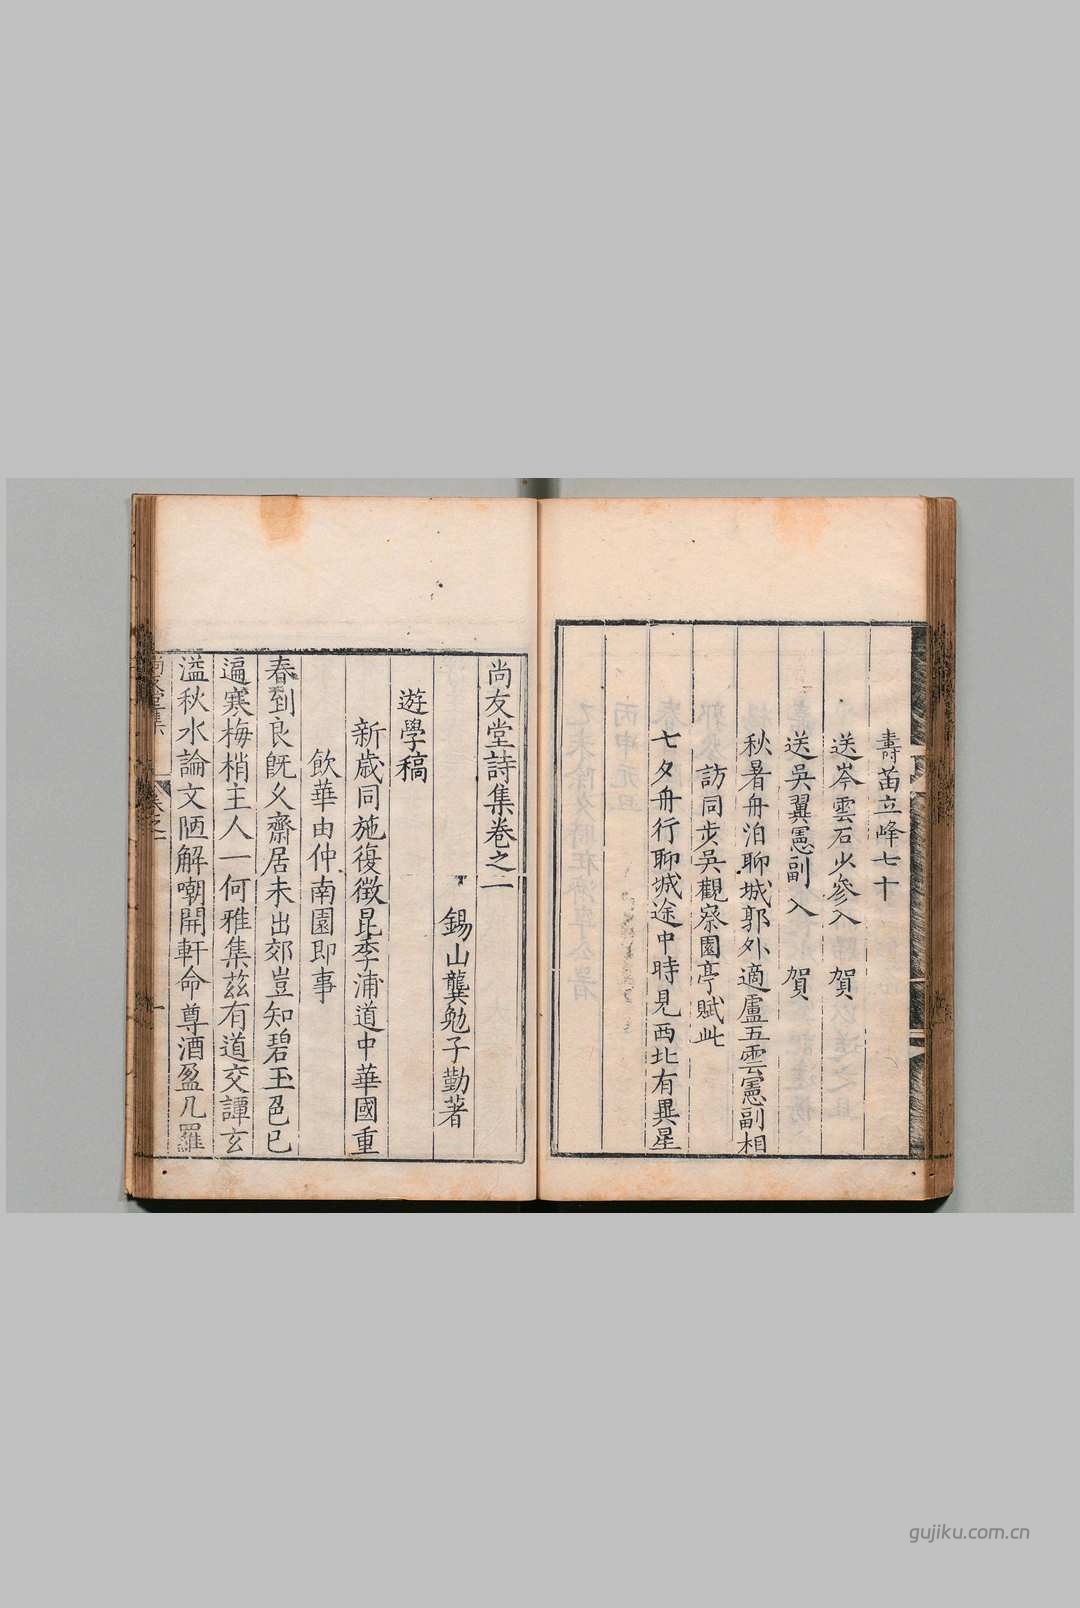 壽苗立峰七十
送岑雲石少參入　賀
送吳翼憲副入　賀
秋暑舟泊聊城郭外適盧五雲憲副相
訪同步吳觀察園亭賦此
七夕舟行聊城途中時見西北有異星
尚友堂詩集卷之二
錫山龔勉子勤著
遊學稿
新歲同施復徵昆季浦道中華國重
飲華由仲南園即事
春到良旣久齋居未出郊豈知碧玉色已
遍寒梅梢主人一何雅集茲有道交譚玄
溢秋水論文陋解嘲開軒命尊酒盈几羅
gujiku.com.cn